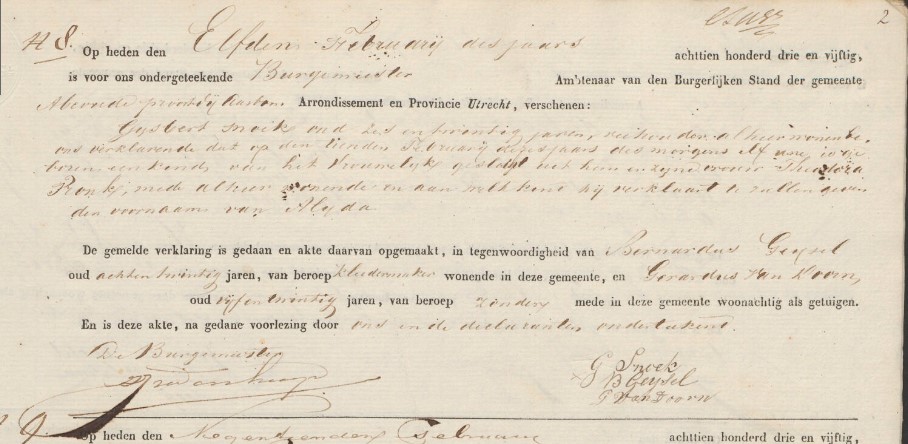 2
N 8. Op heden den Elfden February des jaars achttien honderd drie en vijftig,
is voor ons ondergeteekende Burgemeester Ambtenaar van den Burgerlijken Stand der gemeente
Abcoude Arrondissement en Provincie Utrecht, verschenen:
Gysbert Snoek oud zes en twintig jaren, veehouder alhier wonende,
ons verklarende dat op den tienden February dezes jaars des morgens elf ure is ge
boren een kind, van het Vrouwelyk geslagt uit hem en zyne vrouw Theodora
mede alhier wonende en aan welk kind hy verklaart te zullen geven
den voornaam van Alyda
De gemelde verklaring is gedaan en akte daarvan opgemaakt, in tegenwoordigheid van Bernardus Geysel
oud achtentwintig jaren, van beroep kleedermaker wonende in deze gemeente, en Gerardus van Doorn,
oud vyfentwintig jaren, van beroep zonder mede in deze gemeente woonachtig als getuigen.
En is deze akte, na gedane voorlezing door ons en de declaranten onderteekend.
De Burgemeester
G Snoek
B Geysel
G van Doorn
9. Op heden den Negentienden February achttien honderd drie en vijftig,